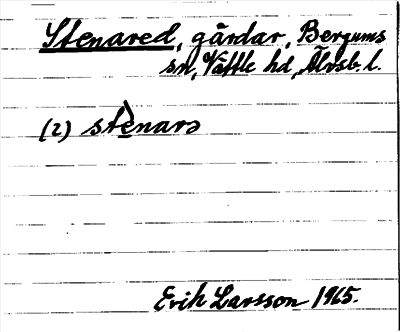 Stenared, gårdar, Bergums
sn, Vättle hd, Älvsb. l.
(2) stènarə
Erik Larsson 1965.